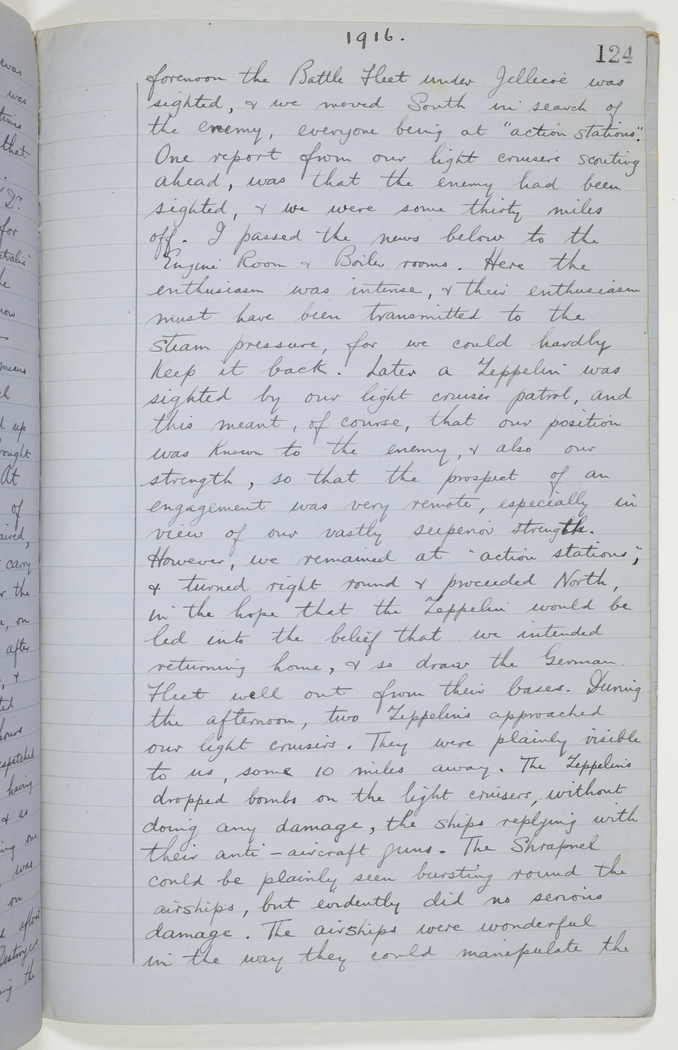 1916.
124
forenoon the Battle Fleet under Jellecoe was
sighted, & we moved South in search of
the enemy, everyone being at "action stations".
One report from our light cruisers scouting
ahead, was that the enemy had been
sighted, & we were some thirty miles
off. I passed the news below to the
Engine Room & Boiler rooms. Here the
enthusiasm was intense, & their enthusiasm
must have been transmitted to the
steam pressure, for we could hardly
keep it back. Later a Zeppelin was
sighted by our light cruiser patrol, and
this meant, of course, that our position
was known to the enemy, & also our
strength, so that the prospect of an
engagement was very remote, especially in
view of our vastly superior strength.
However, we remained at "action stations",
& turned right round & proceeded North,
in the hope that the Zeppelin would be
led into the belief that we intended
returning home, & so draw the German
Fleet well out from their bases. During
the afternoon, two Zeppelins approached
our light cruisers. They were plainly visible
to us, some 10 miles away. The Zeppelins
dropped bombs on the light cruisers, without
doing any damage, the ships replying with
their anti-aircraft guns. The Shrapnel
could be plainly seen bursting round the
airships, but evidently did no serious
damage. The airships were wonderful
in the way they could manipulate the
was
was
times
that
for
the
now
means
up
At
of
carry
the
on
after
&
hours
having
& as
was
on
the